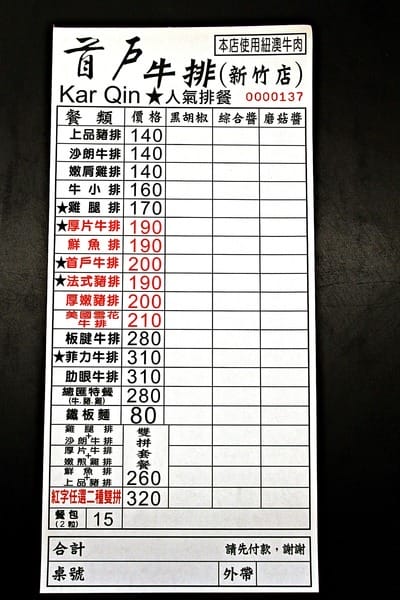 本店使用紐澳牛肉
首戶牛排(新竹店)
Kar Qin★人氣排餐 0000137
餐類 價格 黑胡椒 綜合醬 磨菇醬
上品豬排 140
沙朗牛排 140
嫩肩雞排 140
牛小排 160
★雞腿排 170
★厚片牛排 190
鮮魚排 190
★首戶牛排 200
★法式豬排 190
厚嫩豬排 200
美國雪花牛排 210
板腱牛排 280
★菲力牛排 310
肋眼牛排 310
總匯特餐(牛.豬.雞) 280
鐵板麵 80
雙拼套餐 260
雞腿排+沙朗牛排
厚片牛排+嫩煎雞排
鮮魚排+上品豬排
紅字任選二種雙拼 320
餐包(2粒) 15
合計 請先付款，謝謝
桌號 外帶